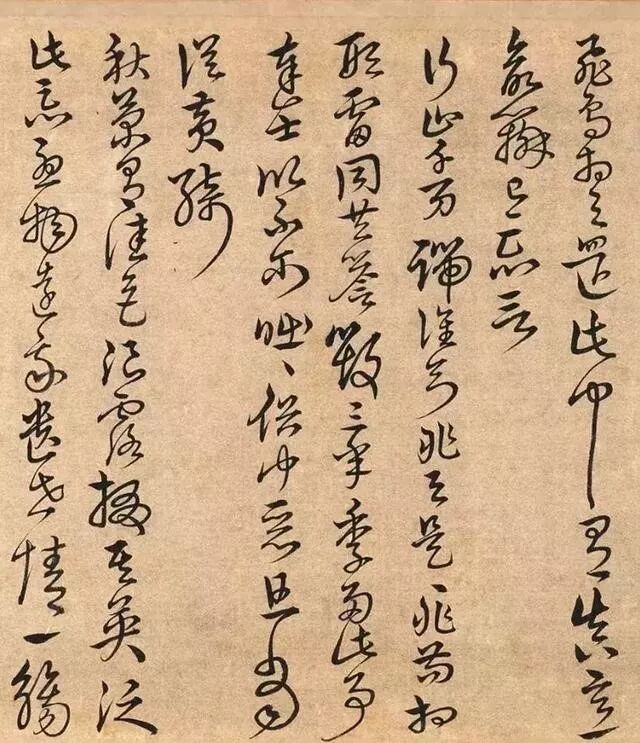 飛鳥相與還此中有真意
欲辯已忘言
行止千万端誰知非与是〻非苟相
形雷同共譽毀三年季多此事
達士似不尔咄〻俗中惡且當
從黃綺
秋菊有佳色浥露掇其英泛
此忘憂物遠我遺世情一觴